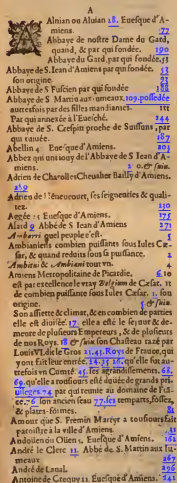 A
Alnian ou Aluian 18. Euesque d'A-
miens. 77
Abbaye de nostre Dame du Gard,
quand, & par qui fondée. 190
Abbaye du Gard, par qui fondée. 55
Abbaye de S. Iean d'Amiens par qui fondée, 53
son origine. 93
Abbaye de S. Fuscien par qui fondée 188
Abbaye de S. Martin aux-iumeaux, 109. possedée
autresfois par des filles marchandises. 111
Par qui annexée à l'Euesché. 144
Abbaye de S. Crespin proche de Suissons, par
qui sauuée. 187
Abellin 4 Euesque d'Amiens. 203
Abbez qui ont iouy de l'Abbaye de S. Iean d'A-
miens. 2 & suiu.
Adrien de Charolles Cheualier Bailly d'Amiens.
249
Adrien de Heneurcourt, ses seigneuries & quali-
tez. 150
Aegée 25 Euesque d'Amiens. 175
Alard 9 Abbé de S. Iean d'Amiens 271
Ambarri quel peuple c'est. 5
Ambianiens combien puissans sous Iules Cæ-
sar, & quand reduits sous sa puissance. 2
Ambiani & Ambianitout vn. 4
Amiens Metropolitaine de Picardie, 6. 10
est par excellence le vray Belgium de Cæsar. 11
de combien puissante sous Iules Cæsar. 11. son
origine. 5 & suiu.
Son assiette & climat, & en combien de parties
elle est diuisée. 17 elle a esté le seiour & de-
meure de plusieurs Empereurs, & de plusieurs
de nos Roys. 18 & suiu. son Chasteau razé par
Louis VI. dit le Gros 23. 45. Roys de France, qui
y ont fait leur entrée. 24. 25. 26. qu'elle fut au-
tresfois vn Comté 45. ses agrandissemens. 68.
69. qu'elle a tousiours esté doüée de grands pri-
uilleges. 74 par qui remise au domaine de Frã-
ce. 76 son ancien seau 77. ses rempars, fossez,
& plattes-formes. 81
Amour que S. Fremin Martyr a tousiours fait
paroistre à la ville d'Amiens. 35
Andoüen ou Oüen 1. Euesque d'Amiens. 162
André le Clerc 11. Abbé de S. Martin aux Iu-
meaux 267
André de Lanal. 276
Antoine de Crequy 11. Euesque d'Amiens. 241